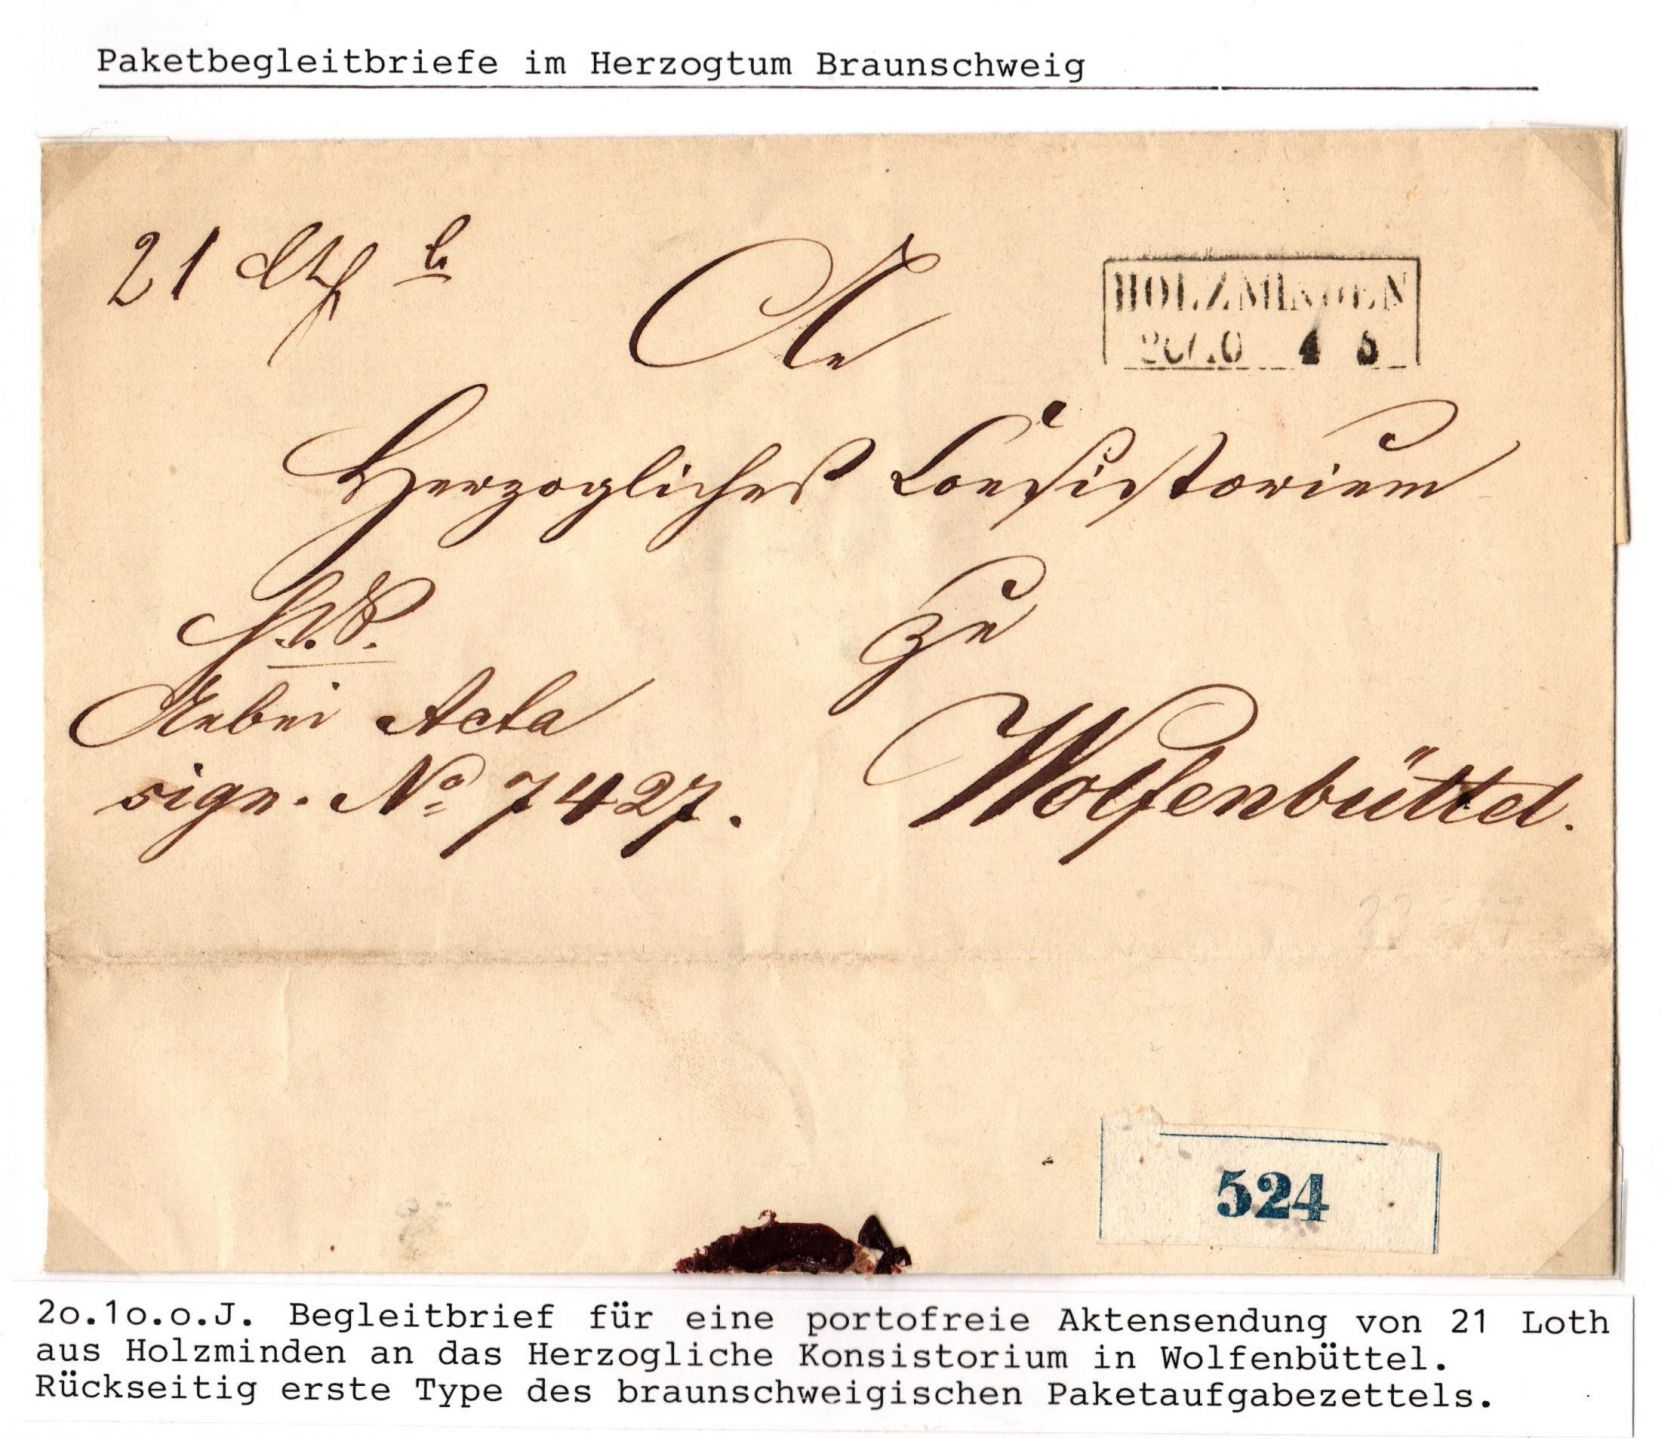 Paketbegleitbriefe im Herzogtum Braunschweig
21 Lth
An
HOLZMINDEN
4 5
Herzogliches Consistorium
H. S.
zu
Nebei Acta
Wolfenbüttel.
sign. No 7427.
524
2o.1o.o.J. Begleitbrief für eine portofreie Aktensendung von 21 Loth
aus Holzminden an das Herzogliche Konsistorium in Wolfenbüttel.
Rückseitig erste Type des braunschweigischen Paketaufgabezettels.